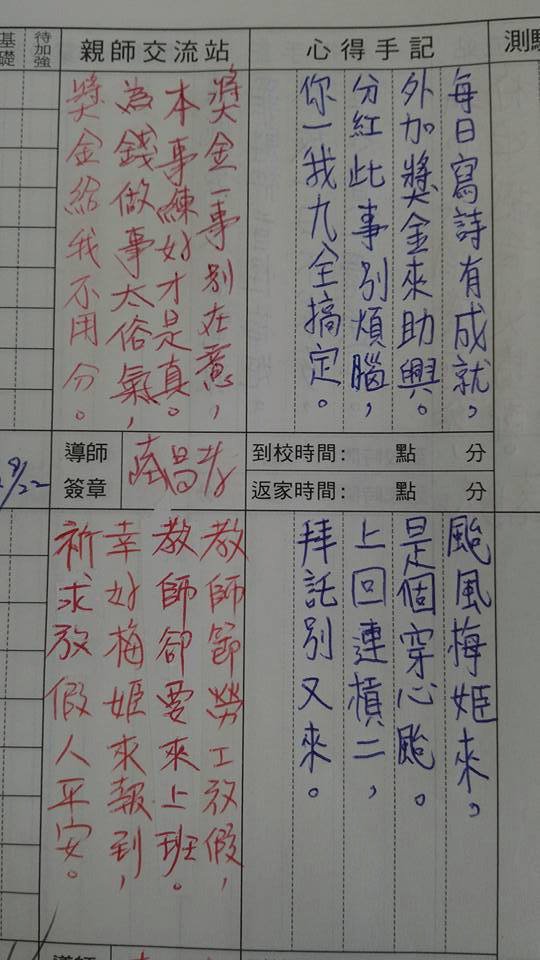 測驗
心得手記
每日寫詩有成就。
外加獎金來助興。
分紅此事別煩腦，
你一我九全搞定。
親師交流站
獎金一事別在意，
本事練好才是真。
為錢做事太俗氣，
獎金給我不用分。
待加強
基礎
到校時間： 點 分
返家時間： 點 分
導師
簽章
9/22
颱風梅姬來。
是個穿心颱。
上回連槓二，
拜託別又來。
教師節勞工放假，
教師卻要來上班。
幸好梅姬來報到，
祈求放假人平安。
導師